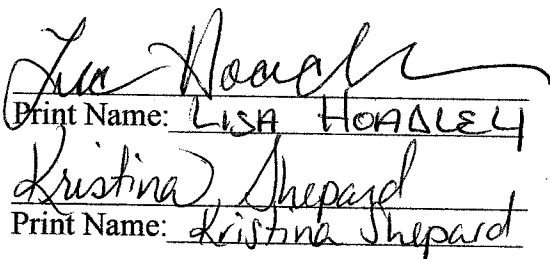 Lisa Hoadley
Print Name: LISA HOADLEY
Kristina Shepard
Print Name: Kristina Shepard